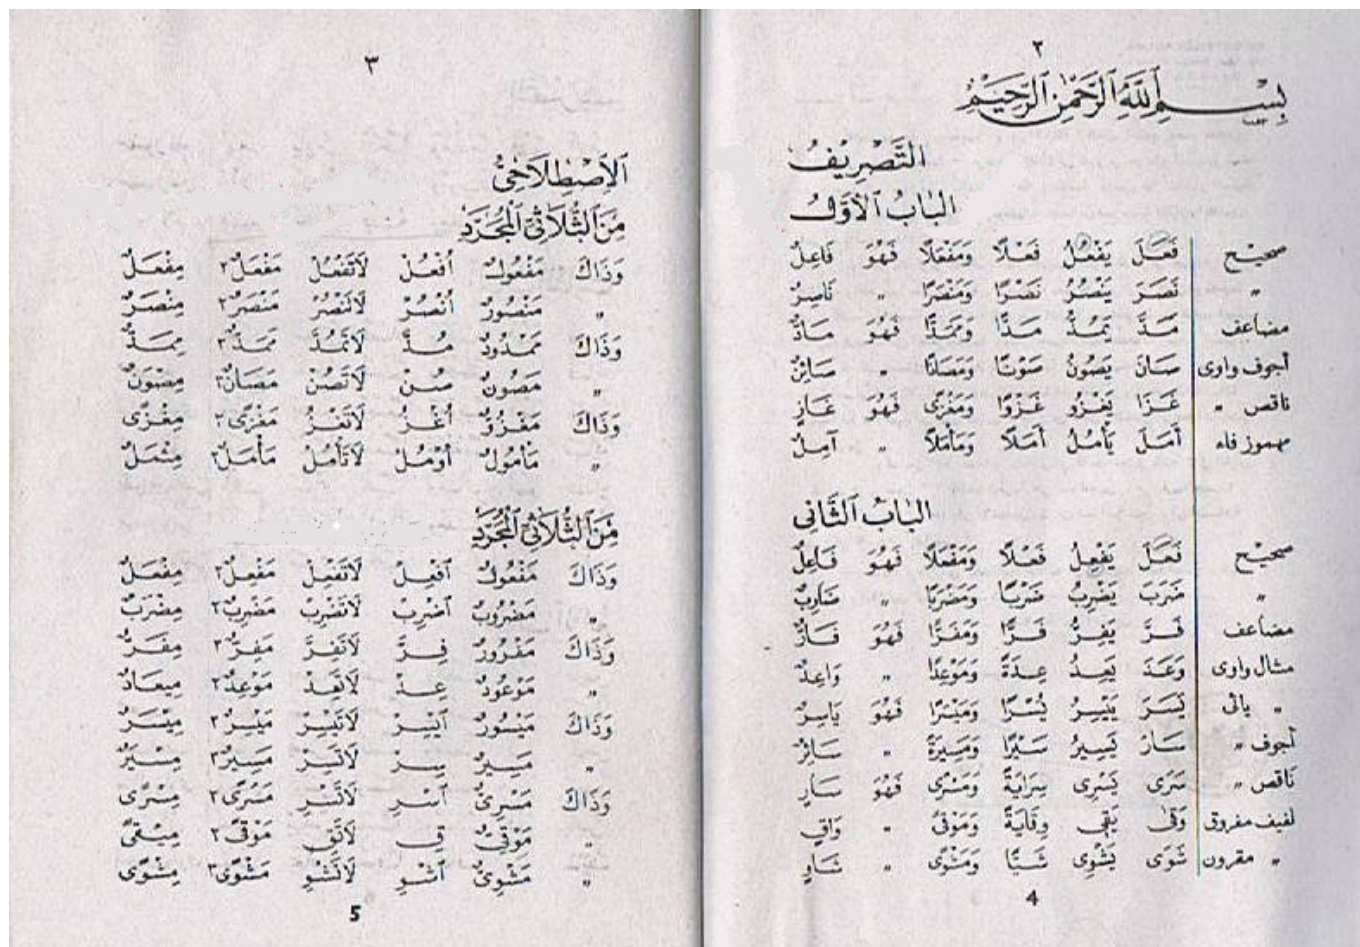 ٢
بِسْمِ ٱللّٰهِ ٱلرَّحْمٰنِ ٱلرَّحِيْمِ
التَّصْرِيْفُ
البَابُ ٱلْأَوَّلُ
صحيح فَعَلَ يَفْعُلُ فَعْلًا وَمَفْعَلًا فَهُوَ فَاعِلٌ
〃 نَصَرَ يَنْصُرُ نَصْرًا وَمَنْصَرًا 〃 نَاصِرٌ
مضاعف مَدَّ يَمُدُّ مَدًّا وَمَمَدًّا فَهُوَ مَادٌّ
أجوف واوى صَانَ يَصُوْنُ صَوْنًا وَمَصَانًا 〃 صَائِنٌ
ناقص 〃 غَزَا يَغْزُو غَزْوًا وَمَغْزًى فَهُوَ غَازٍ
مهموز فاء أَمَلَ يَأْمُلُ أَمَلًا وَمَأْمَلًا 〃 آمِلٌ
البَابُ ٱلثَّانِى
صحيح فَعَلَ يَفْعِلُ فَعْلًا وَمَفْعَلًا فَهُوَ فَاعِلٌ
〃 ضَرَبَ يَضْرِبُ ضَرْبًا وَمَضْرَبًا 〃 ضَارِبٌ
مضاعف فَرَّ يَفِرُّ فَرًّا وَمَفَرًّا فَهُوَ فَارٌّ
مثال واوى وَعَدَ يَعِدُ عِدَةً وَمَوْعِدًا 〃 وَاعِدٌ
〃 يائى يَسَرَ يَيْسِرُ يُسْرًا وَمَيْسَرًا فَهُوَ يَاسِرٌ
أجوف 〃 سَارَ يَسِيْرُ سَيْرًا وَمَسِيْرَةً 〃 سَائِرٌ
نَاقص 〃 سَرَى يَسْرِى سِرَايَةً وَمَسْرًى فَهُوَ سَارٍ
لفيف مفروق وَقَى يَقِى وِقَايَةً وَمَوْقًى 〃 وَاقٍ
〃 مقرون شَوَى يَشْوِى شَيًّا وَمَشْوًى 〃 شَاوٍ
4
٣
ٱلْاِصْطِلَاحِىُّ
مِنَ ٱلثُّلَاثِىِّ ٱلْمُجَرَّدِ
وَذَاكَ مَفْعُوْلٌ اُفْعُلْ لَاتَفْعُلْ مَفْعَلٌ٢ مِفْعَلٌ
〃 مَنْصُوْرٌ اُنْصُرْ لَاتَنْصُرْ مَنْصَرٌ٢ مِنْصَرٌ
وَذَاكَ مَمْدُوْدٌ مُدَّ لَاتَمُدَّ مَمَدٌّ٢ مِمَدٌّ
〃 مَصُوْنٌ صُنْ لَاتَصُنْ مَصَانٌ٢ مِصْوَنٌ
وَذَاكَ مَغْزُوٌّ اُغْزُ لَاتَغْزُ مَغْزًى٢ مِغْزًى
〃 مَأْمُوْلٌ اُوْمُلْ لَاتَأْمُلْ مَأْمَلٌ٢ مِئْمَلٌ
مِنَ ٱلثُّلَاثِىِّ ٱلْمُجَرَّدِ
وَذَاكَ مَفْعُوْلٌ اِفْعِلْ لَاتَفْعِلْ مَفْعِلٌ٢ مِفْعَلٌ
〃 مَضْرُوْبٌ اِضْرِبْ لَاتَضْرِبْ مَضْرِبٌ٢ مِضْرَبٌ
وَذَاكَ مَفْرُوْرٌ فِرَّ لَاتَفِرَّ مَفِرٌّ٢ مِفَرٌّ
〃 مَوْعُوْدٌ عِدْ لَاتَعِدْ مَوْعِدٌ٢ مِيْعَادٌ
وَذَاكَ مَيْسُوْرٌ اِيْسِرْ لَاتَيْسِرْ مَيْسِرٌ٢ مِيْسَرٌ
〃 مَسِيْرٌ سِرْ لَاتَسِرْ مَسِيْرٌ٢ مِسْيَرٌ
وَذَاكَ مَسْرِىٌّ اِسْرِ لَاتَسْرِ مَسْرًى٢ مِسْرًى
〃 مَوْقِىٌّ قِ لَاتَقِ مَوْقًى٢ مِيْقًى
〃 مَشْوِىٌّ اِشْوِ لَاتَشْوِ مَشْوًى٢ مِشْوًى
5